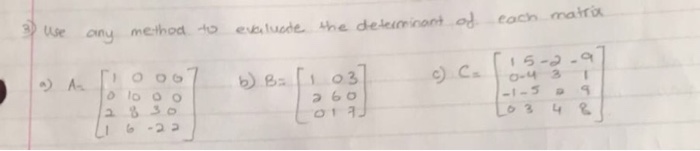 3) Use any method to evaluate the determinant of each matrix
a) A= [1 0 0 0
0 10 0 0
2 8 3 0
1 6 -2 2]
b) B= [1 0 3
2 6 0
0 1 7]
c) C= [1 5 -2 -9
0 -4 3 1
-1 -5 2 9
0 3 4 8]